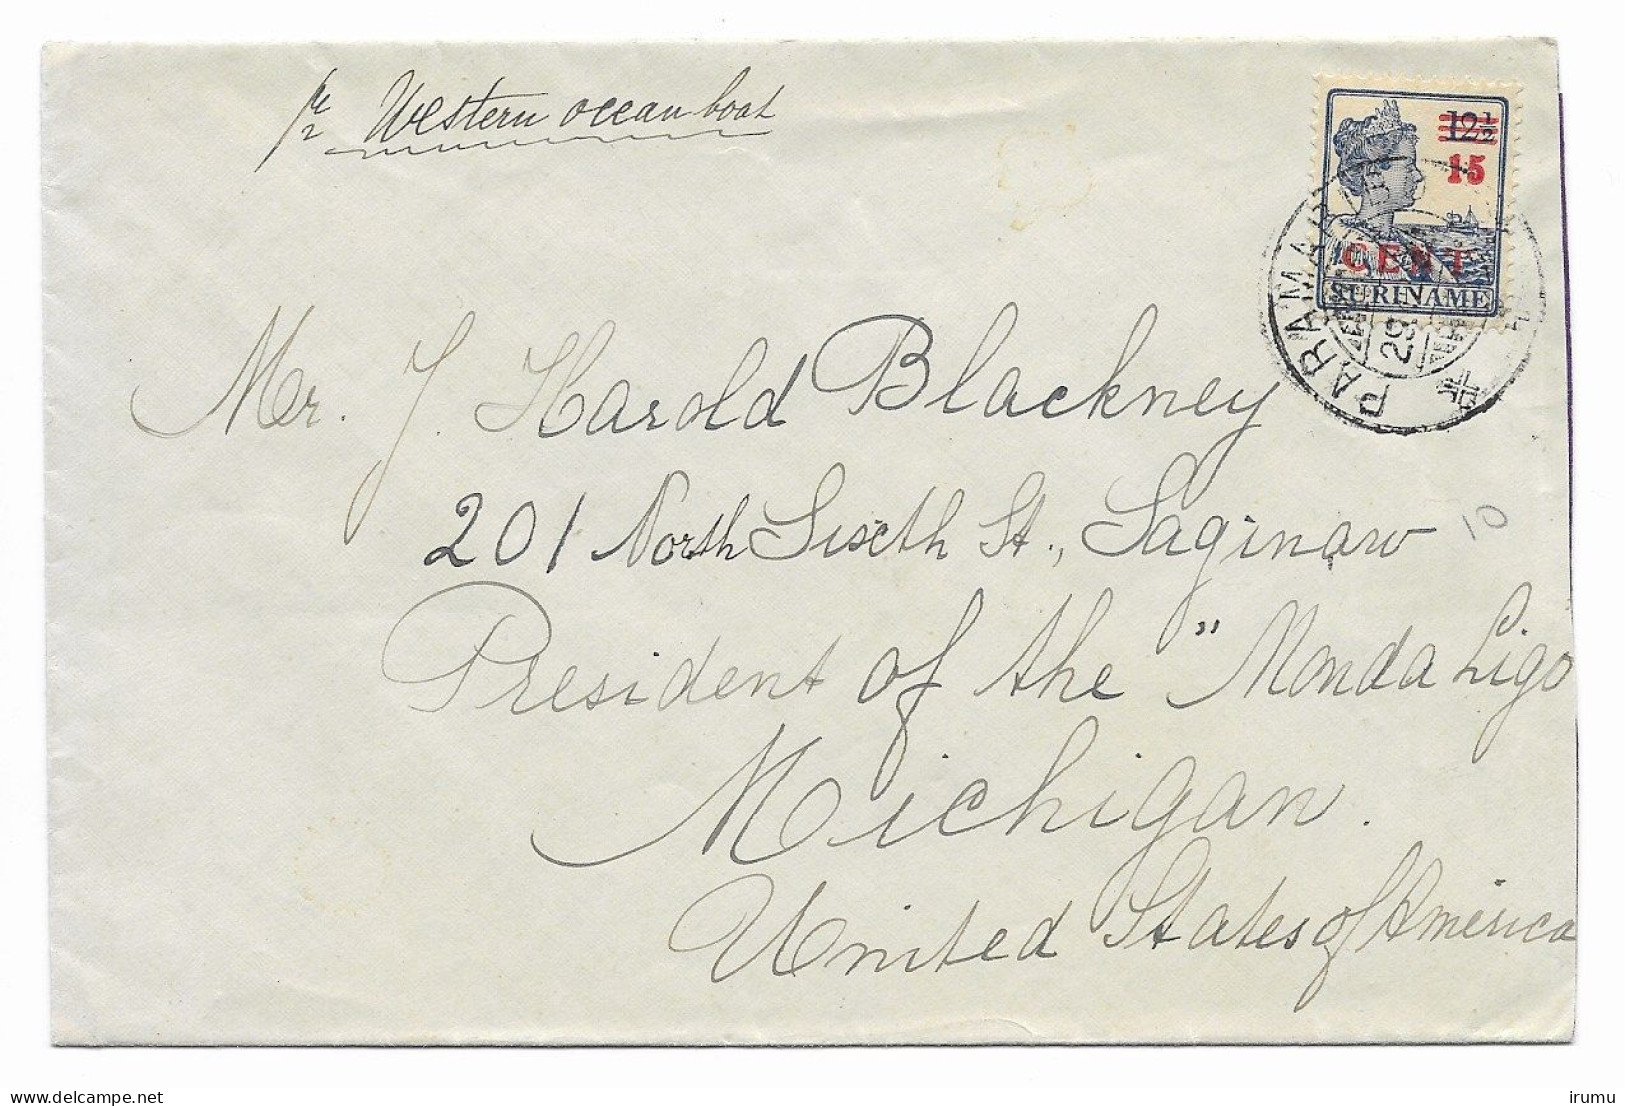 pr Western ocean boat
12½
15
CENT
SURINAME
PARAMARIBO
29
Mr. J. Harold Blackney
201 North Sixth St., Saginaw
10
President of the "Monda Ligo
Michigan.
United States of America
delcampe.net
irumu